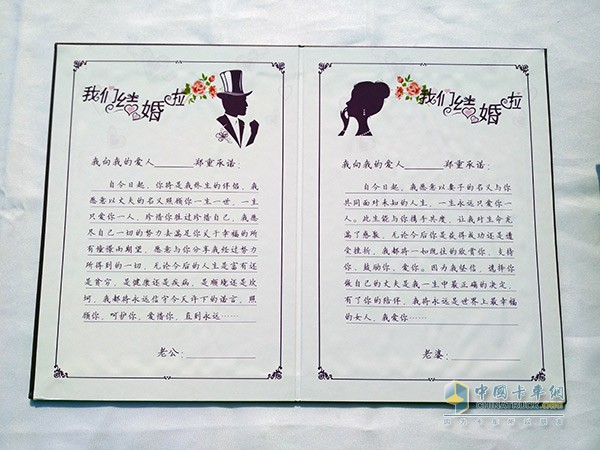 我们结婚啦
我向我的爱人______郑重承诺：
自今日起，你将是我终生的伴侣，我
愿意以丈夫的名义照顾你一生一世，一生
只爱你一人，珍惜你胜过珍惜自己，我愿
尽自己一切的努力去满足你关于幸福的所
有憧憬而期望，愿意与你分享我经过努力
所得到的一切，无论今后的人生是富有还
是贫穷，是健康还是疾病，是顺境还是坎
坷，我都将永远信守今天许下的诺言，照
顾你，呵护你，爱惜你，直到永远……
老公：
我们结婚啦
我向我的爱人______郑重承诺：
自今日起，我愿意以妻子的名义与你
共同面对未知的人生，一生永远只爱你一
人。此生能与你携手共度，让我对生命充
满了感激，无论今后你是获得成功还是遭
受挫折，我都将一如既往的欣赏你，支持
你，鼓励你，爱你。因为我坚信，选择你
做自己的丈夫是我一生中最正确的决定，
有了你的陪伴，我将永远是世界上最幸福
的女人，我爱你……
老婆：
中国卡车网
CHINATRUCK.COM